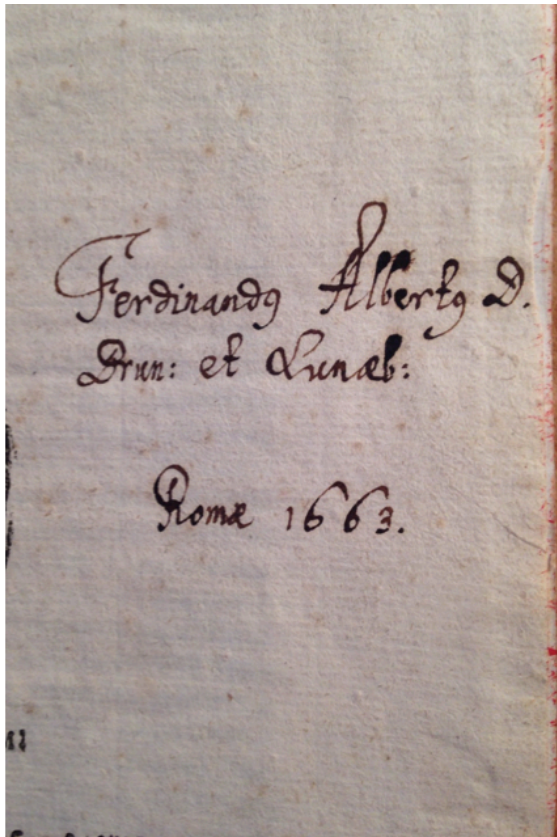 Ferdinandꝰ Albertꝰ D.
Brun: et Lunæb:
Romæ 1663.